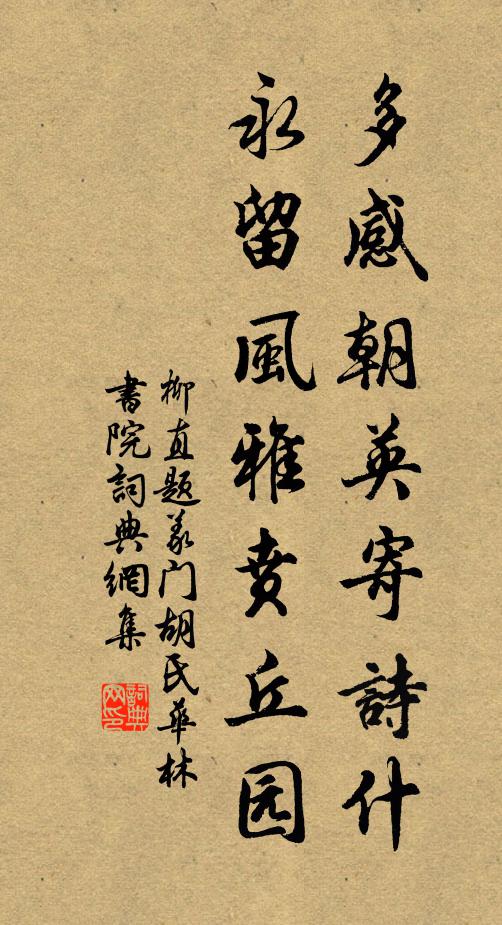 多感朝英寄詩什
永留風雅賁丘园
柳直题义门胡氏華林
書院詞典網集
詞典网印